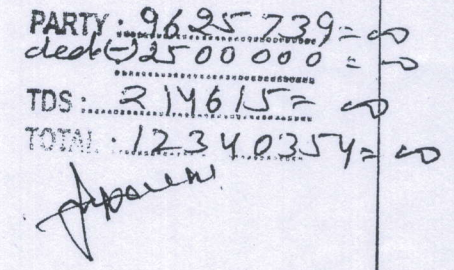 PARTY : 9625739=00
ded(-) 2500000 = 00
TDS : 214615= 00
TOTAL : 12340354= 00